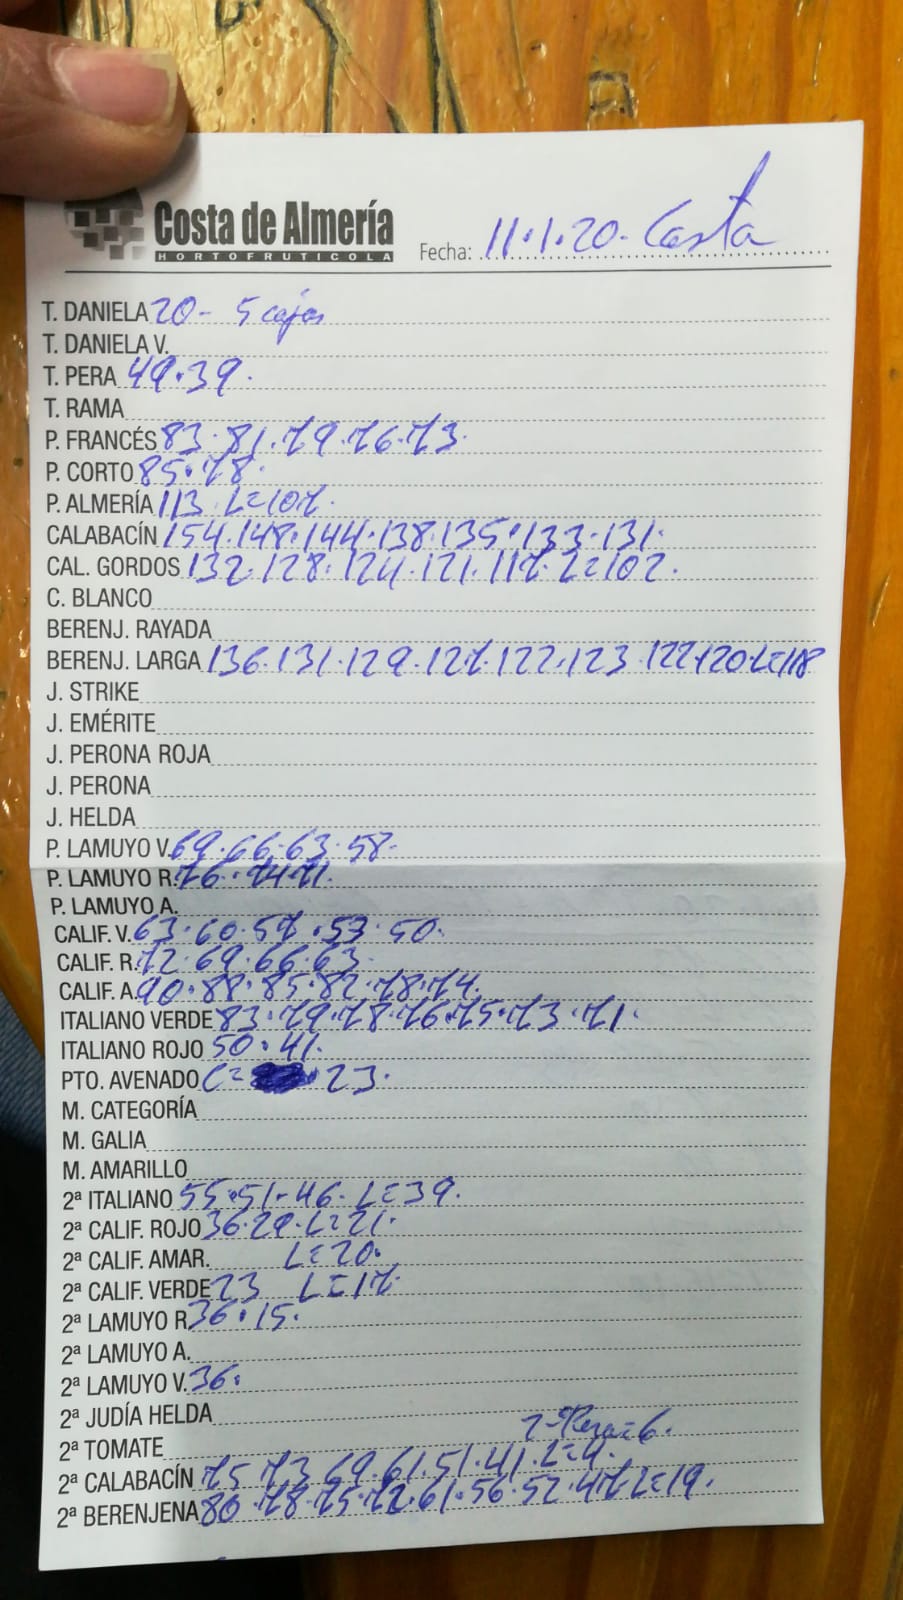 Costa de Almería
HORTOFRUTICOLA
Fecha: 11.1.20. Costa
T. DANIELA 20 - 5 cajas
T. DANIELA V.
T. PERA 49.39.
T. RAMA
P. FRANCÉS 83.81.79.76.73.
P. CORTO 85.78.
P. ALMERÍA 113. L=107.
CALABACÍN 154.148.144.138.135.133.131.
CAL. GORDOS 132.128.124.121.117.L=102.
C. BLANCO
BERENJ. RAYADA
BERENJ. LARGA 136.131.129.127.122.123.122.120.L=118
J. STRIKE
J. EMÉRITE
J. PERONA ROJA
J. PERONA
J. HELDA
P. LAMUYO V. 69.66.63.58.
P. LAMUYO R. 76.74.71.
P. LAMUYO A.
CALIF. V. 63.60.57.53.50.
CALIF. R. 72.69.66.63.
CALIF. A. 90.88.85.82.78.74.
ITALIANO VERDE 83.79.78.76.75.73.71.
ITALIANO ROJO 50.41.
PTO. AVENADO L= 23.
M. CATEGORÍA
M. GALIA
M. AMARILLO
2ª ITALIANO 55.51.46.L=39.
2ª CALIF. ROJO 36.29.L=21.
2ª CALIF. AMAR. L=20.
2ª CALIF. VERDE 23 L=17.
2ª LAMUYO R. 36.15.
2ª LAMUYO A.
2ª LAMUYO V. 36.
2ª JUDÍA HELDA
2ª TOMATE Pera=6.
2ª CALABACÍN 75.73.69.61.51.41.L=4.
2ª BERENJENA 80.78.75.72.61.56.52.47.L=19.